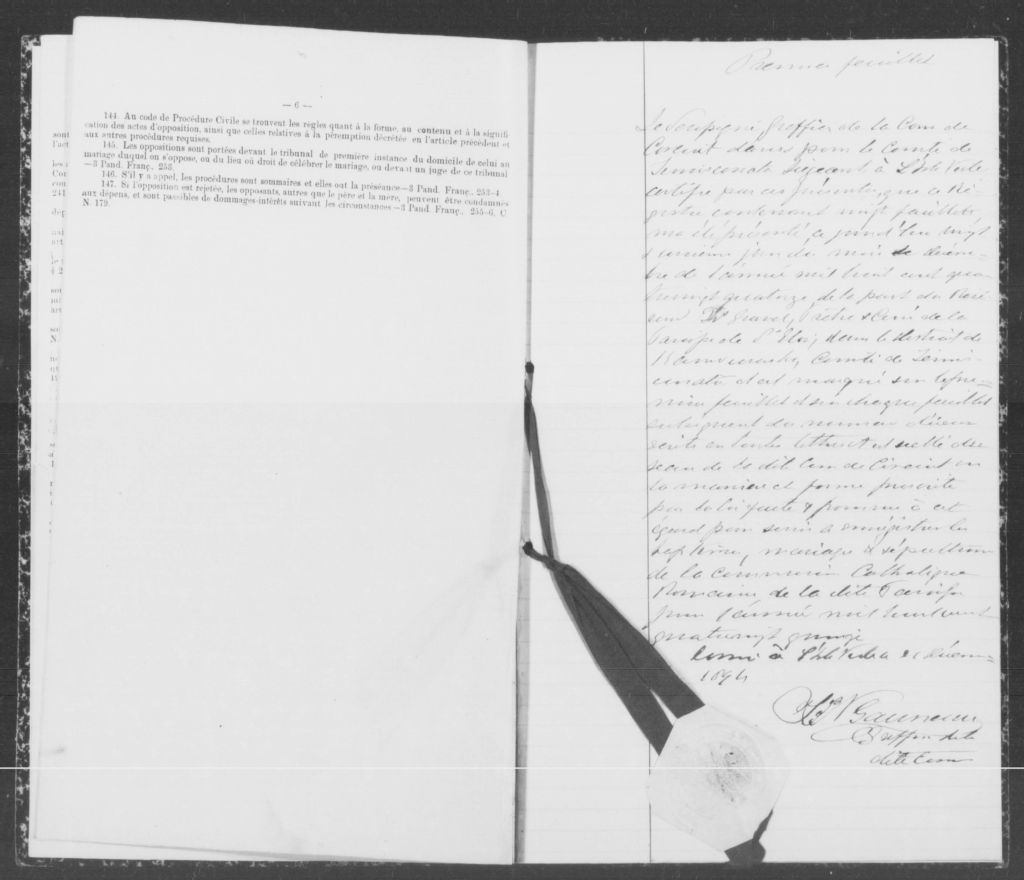 — 6 —
144. Au code de Procédure Civile se trouvent les règles quant à la forme, au contenu et à la signifi
cation des actes d'opposition, ainsi que celles relatives à la péremption décrétée en l'article précédent et
aux autres procédures requises.
145. Les oppositions sont portées devant le tribunal de première instance du domicile de celui au
mariage duquel on s'oppose, ou du lieu où droit de célébrer le mariage, ou devant un juge de ce tribunal
—3 Pand. Franç., 253.
146. S'il y a appel, les procédures sont sommaires et elles ont la préséance—3 Pand. Franç., 253-4.
147. Si l'opposition est rejetée, les opposants, autres que le père et la mère, peuvent être condamnés
aux dépens, et sont passibles de dommages-intérêts suivant les circonstances—3 Pand. Franç., 255-6. C
N. 179.
Premier feuillet
Le Soussigné Greffier de la Cour de
Circuit dans pour le Comté de
Temiscouata Siégeant à L'Isle Verte
certifie par ces présentes que ce Ré-
gistre contenant vingt feuillets,
m'a été présenté, ce jourd'hui vingt
& unième jour du mois de Décem-
bre de l'année mil huit cent qua
trevingt quatorze, de la part du Révé-
rend Gravel, Prêtre & Curé de la
Paroisse de St Eloi, dans le district de
Kamouraska, Comté de Témis-
couata et est marqué sur le pre-
mier feuillet et sur chaque feuillet
subséquent du numéro d'iceux
écrits en toutes lettres et scellé du
sceau de la dite Cour de Circuit en
la manière et forme prescrite
par la loi faite & pourvue à cet
égard pour servir à enregistrer les
baptêmes, mariages & sépultures
de la communion Catholique
Romaine de la dite Paroisse
pour l'année mil huit cent
quatrevingt quinze
Donné à L'Isle Verte 21 Décem-
1894
Greffier de la
dite Cour